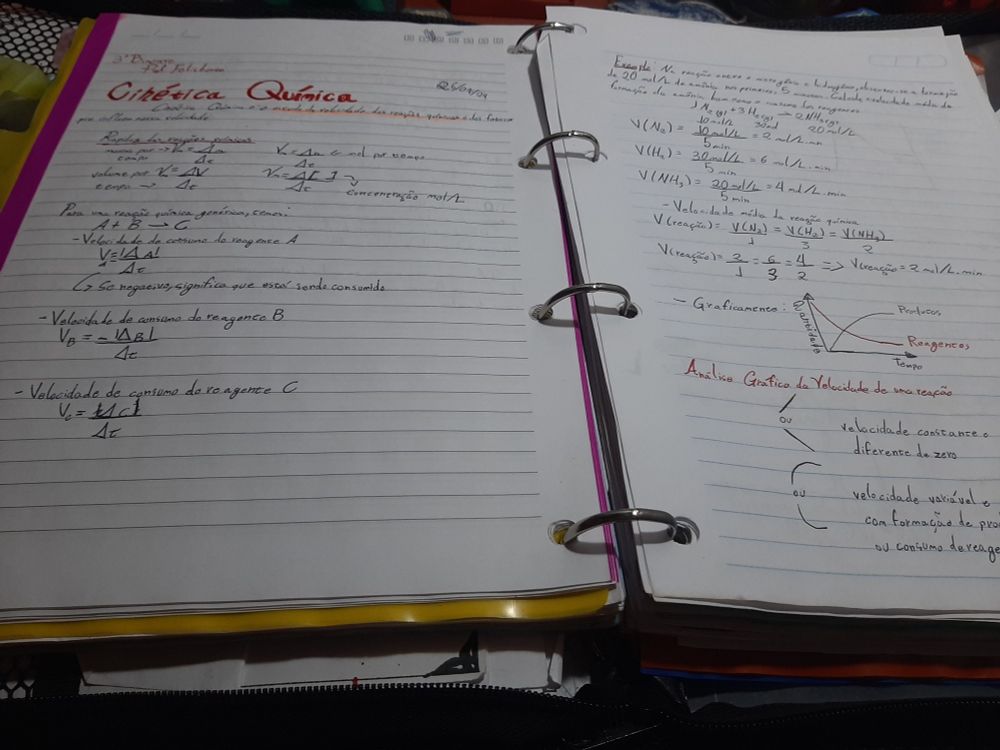 3º Bimestre
Cinética Química
Cinética Química é o estudo da velocidade das reações químicas e dos fatores
que influenciam velocidade
Rapidez das reações químicas
massa por → V = Δm
tempo Δt
Vm = Δm ← mol por tempo
Δt
volume por V = ΔV
tempo → Δt
Vm = Δ[ ] →
Δt concentração mol/L
Para uma reação química genérica, temos:
A + B → C
- Velocidade de consumo do reagente A
V = |ΔA|
Δt
↳ Se negativo, significa que está sendo consumido
- Velocidade de consumo do reagente B
VB = - |ΔB|
Δt
- Velocidade de consumo do reagente C
Vc = |ΔC|
Δt
Exemplo: Na reação entre o nitrogênio e hidrogênio, observou-se a formação
de 20 mol/L de amônia nos primeiros 5 minutos. Calcule a velocidade média de
formação da amônia, bem como o consumo dos reagentes
1 N2(g) + 3 H2(g) → 2NH3(g)
10 mol/L 30 mol 20 mol/L
V(N2) = 10 mol/L = 2 mol/L.min
5 min
V(H2) = 30 mol/L = 6 mol/L.min
5 min
V(NH3) = 20 mol/L = 4 mol/L.min
5 min
- Velocidade média da reação química
V(reação) = V(N2) = V(H2) = V(NH3)
1 3 2
V(reação) = 2 = 6 = 4 => V(reação = 2 mol/L.min
1 3 2
- Graficamente:
Quantidade
Produtos
Reagentes
Tempo
Análise Gráfica da Velocidade de uma reação
ou
velocidade constante e
diferente de zero
ou
velocidade variável e
com formação de pro
ou consumo de reage